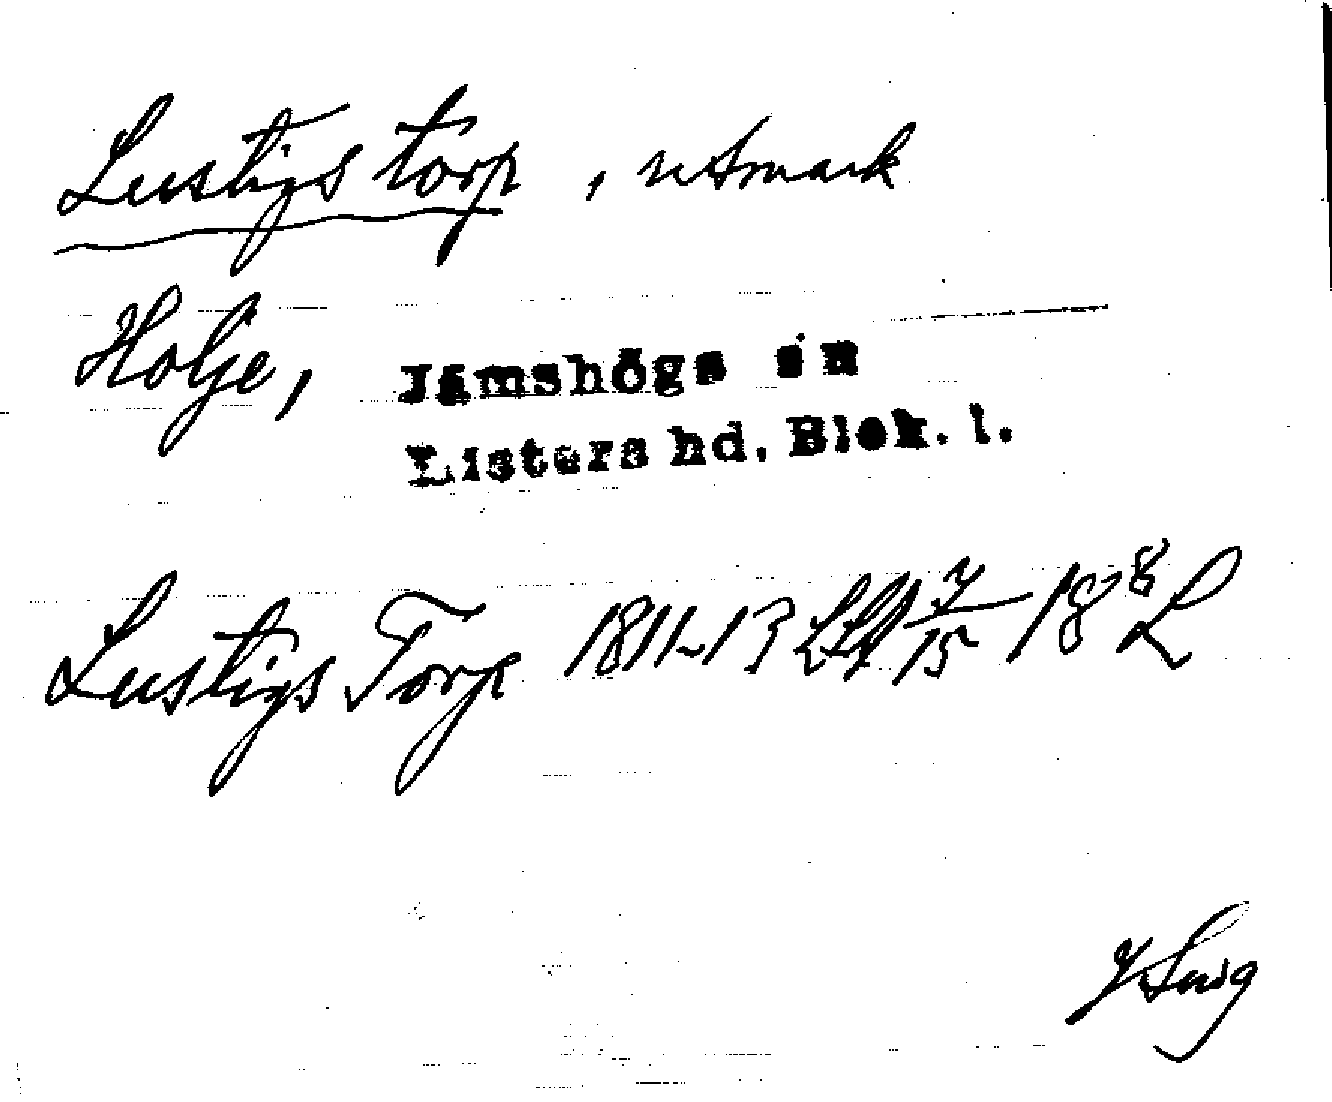 Lustigstorp, utmark
Holje, Jämshögs sn
Listers hd. Blek. l.
Lustigs Torp 1811-13 LSA 7/15 18 8 L